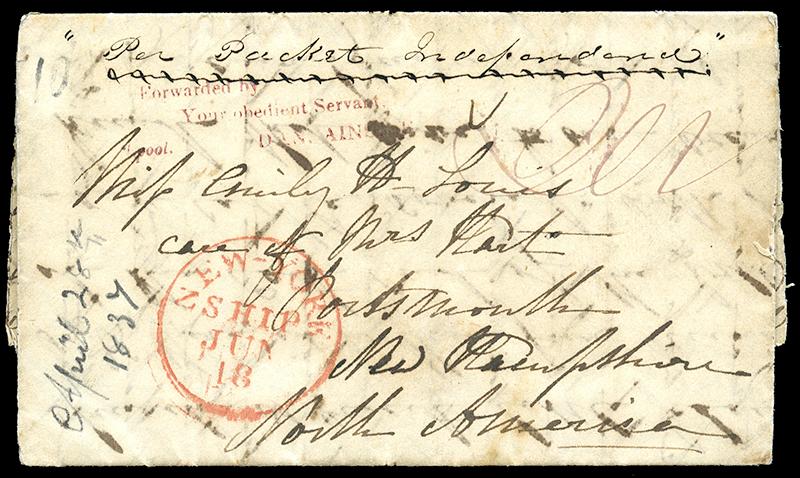 " Per Packet Independend "
10
Forwarded by
Your obedient Servant,
DAN.
pool.
Miss Emily H Louis
care of Mrs Hart
Portsmouth
New Hampshire
North America
NEW-YORK
SHIP
JUN
18
April 28th
1837